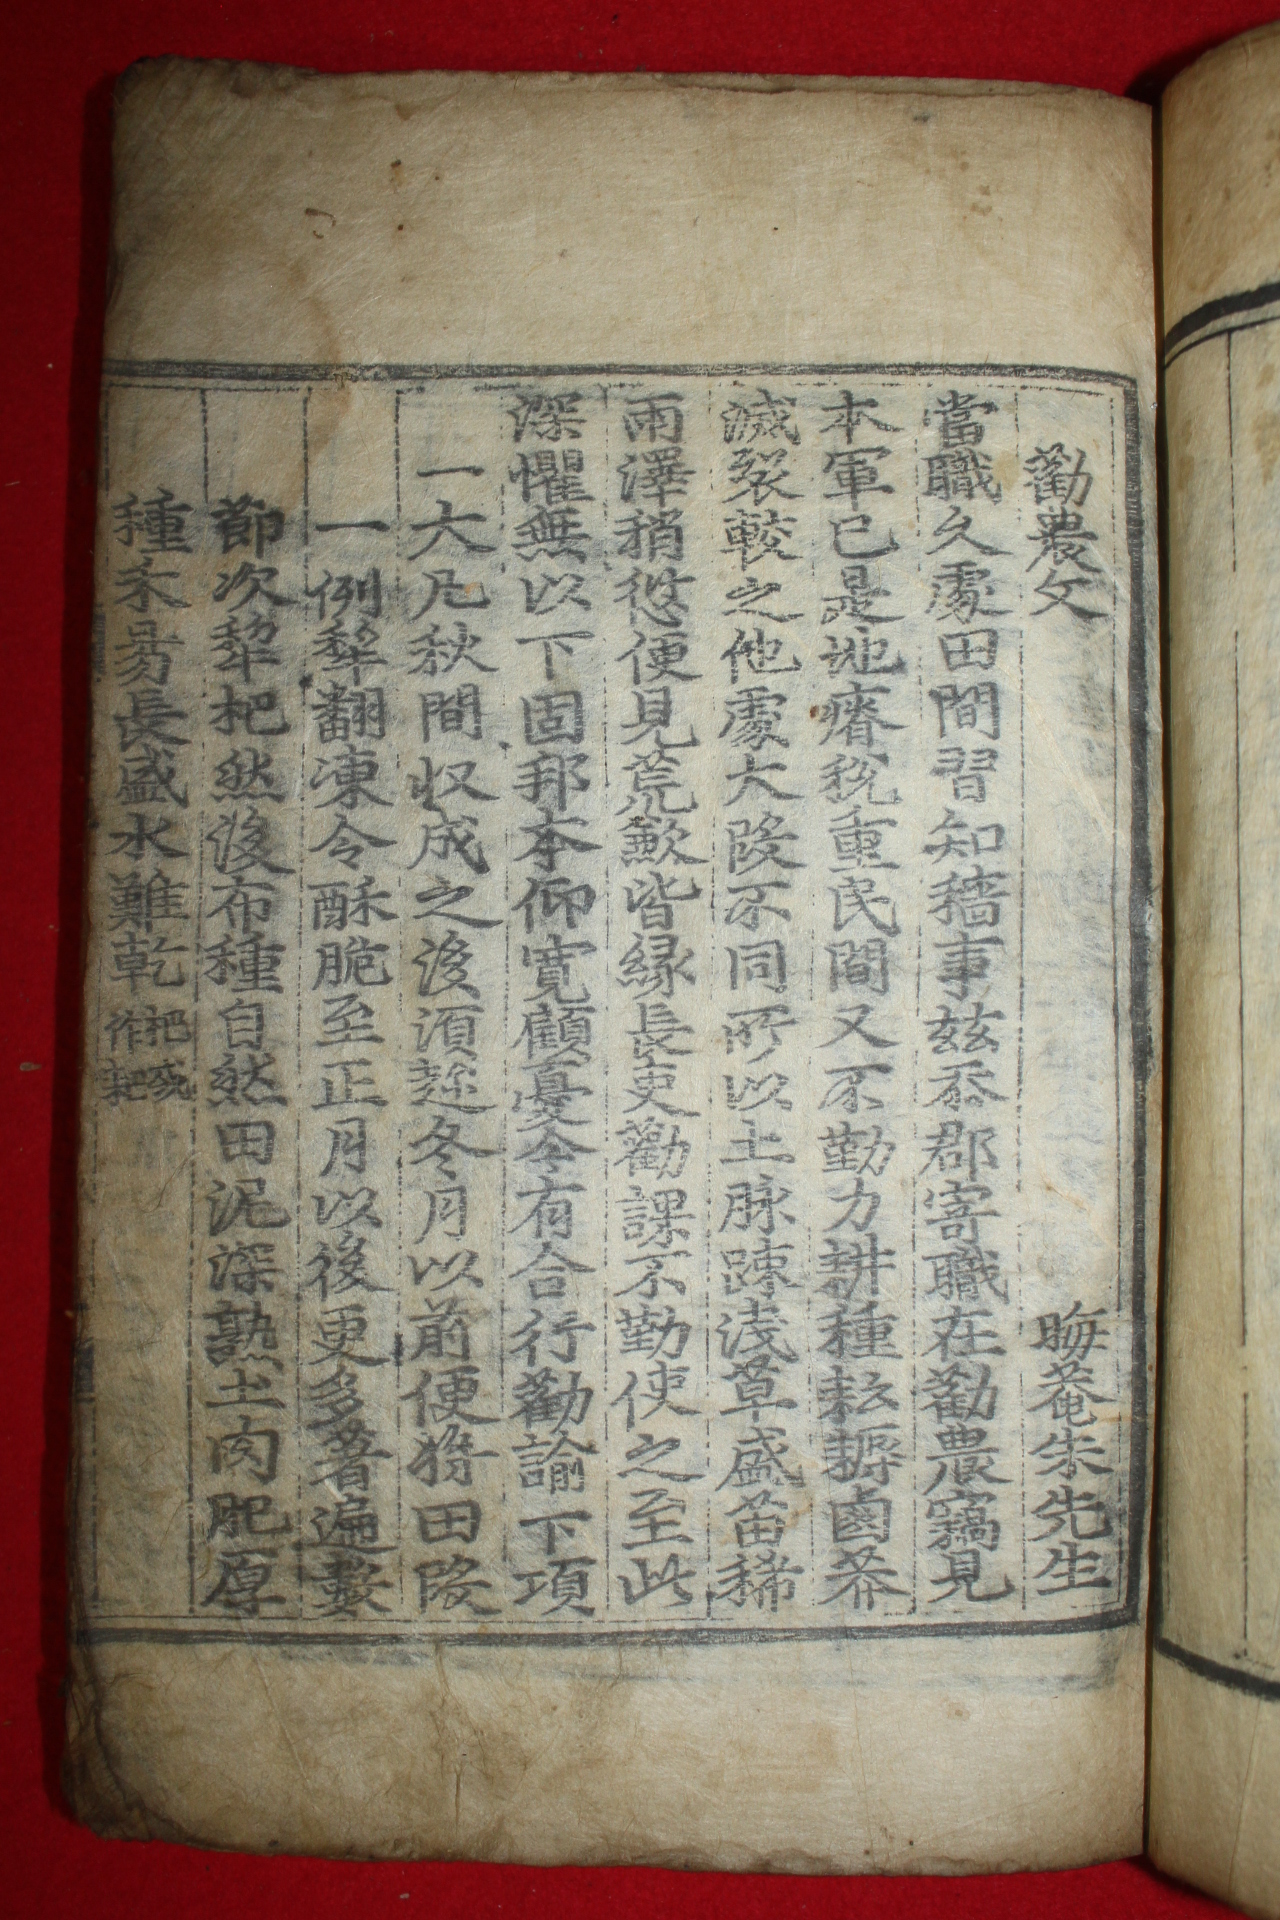 勸農文 晦菴朱先生
當職久處田間習知穡事玆忝郡寄職在勸農竊見
本軍已是地瘠稅重民間又不勤力耕種耘耨鹵莽
滅裂較之他處大段不同所以土脉踈淺草盛苗稀
雨澤稍愆便見荒歉皆緣長吏勸課不勤使之至此
深懼無以下固邦本仰寬顧憂今有合行勸諭下項
一大凡秋間收成之後須趂冬月以前便將田段
一例犂翻凍令酥脆至正月以後更多著遍數
節次犂杷然後布種自然田泥深熟土肉肥厚
種禾昜長盛水難乾杷或作耙